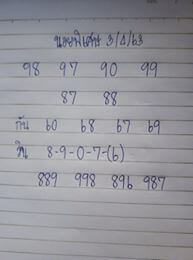 นอยพิเศษ 3/4/63
98 97 90 99
87 88
กัน 60 68 67 69
วิ่น 8-9-0-7-(6)
889 998 896 987